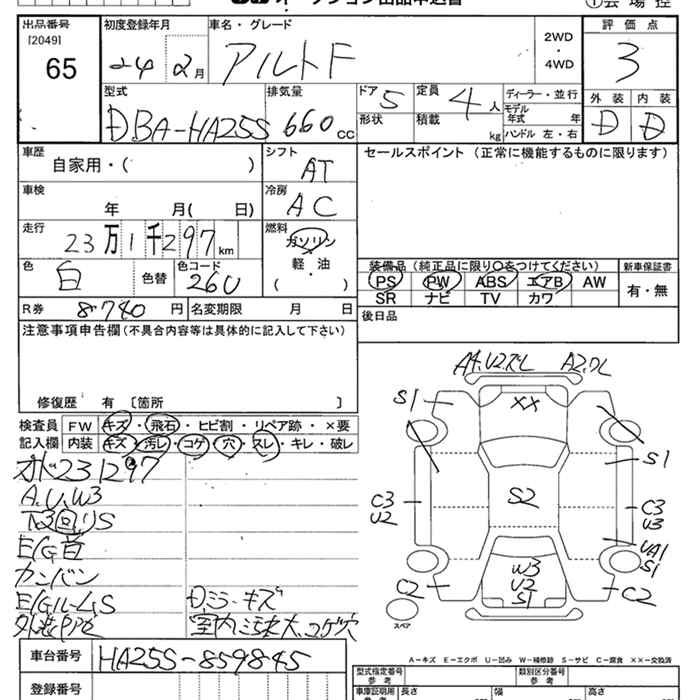 ①会場控
出品番号
[2049]
65
初度登録年月
24 2月
車名・グレード
アルトF
2WD
・
4WD
評価点
3
外装 内装
D D
型式
DBA-HA25S
排気量
660 CC
ドア 5
定員 4 人
形状
積載 kg
ディーラー・並行
モデル年式 年
ハンドル 左・右
車歴
自家用・( )
シフト
AT
車検
年 月( 日)
冷房
AC
走行
23万1千297km
燃料
ガソリン
軽・油
( )
色
白
色替
色コード
260
R券 8,740円
名変期限 月 日
セールスポイント (正常に機能するものに限ります)
装備品(純正品に限り○をつけてください)
PS PW ABS エアB AW
SR ナビ TV カワ
新車保証書
有・無
後日品
注意事項申告欄(不具合内容等は具体的に記入して下さい)
修復歴 有 〔箇所 〕
検査員記入欄
FW キズ・飛石・ヒビ割・リペア跡・×要
内装 キズ・汚レ・コゲ・穴・スレ・キレ・破レ
オド231297
A.U.W3
下廻リS
E/G音
カンバン
E/GルームS
Dミラーキズ
室内汚レ大、コゲ穴
A4.U2.ズレ A2.ワレ
S1
XX
S1
C3
U2
S2
C3
U3
UA1
S1
W3
U2
S1
C2
C2
スペア
A-キズ E-エクボ U-凹み W-補修跡 S-サビ C-腐食 ××-交換済
車台番号 HA25S-859845
登録番号
型式指定番号
参考
類別区分番号
参考
車庫証明用
長さ 幅 高さ